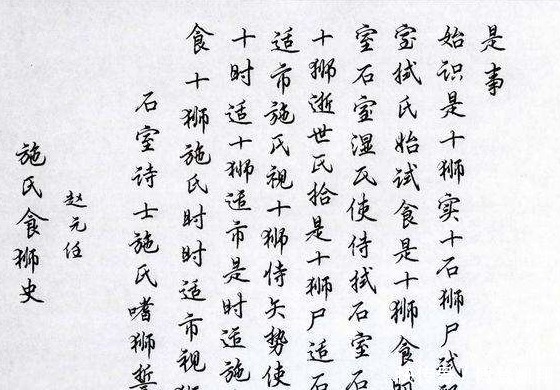 施氏食狮史
赵元任
石室诗士施氏嗜狮誓
食十狮施氏时时适市视
十时适十狮适市是时适施
适市施氏视十狮恃矢势使
十狮逝世氏拾是十狮尸适石
室石室湿氏使侍拭石室石
室拭氏始试食是十狮食时
始识是十狮实十石狮尸试
是事